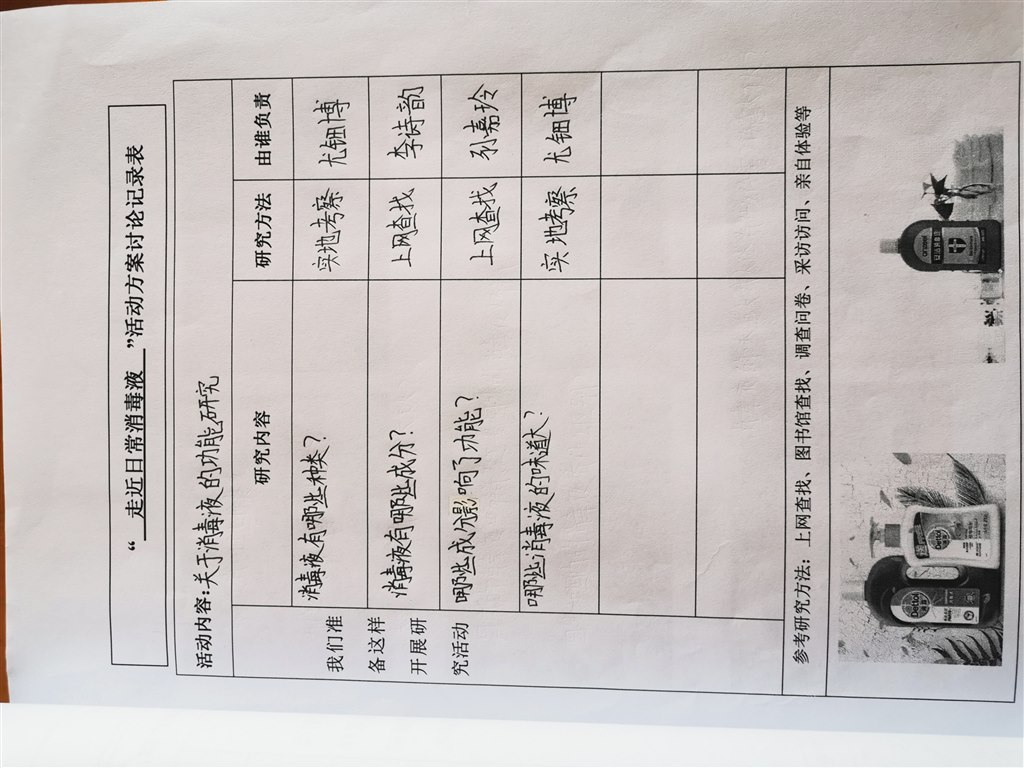 “ 走近日常消毒液 ”活动方案讨论记录表
活动内容：关于消毒液的功能研究
研究内容 研究方法 由谁负责
我们准
备这样
开展研
究活动
消毒液有哪些种类？ 实地考察 尤钿博
消毒液有哪些成分？ 上网查找 李诗韵
哪些成分影响了功能？ 上网查找 孙嘉玲
哪些消毒液的味道大？ 实地考察 尤钿博
参考研究方法：上网查找、图书馆查找、调查问卷、采访访问、亲自体验等
Dettol
Dettol